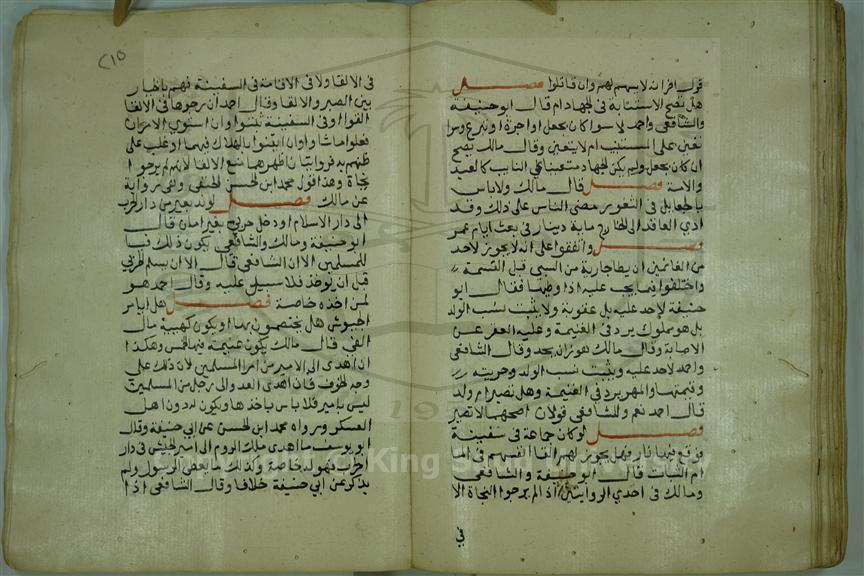 قول اقرانه لا يسهم لهم وان قاتلوا فصل
هل تصح الاستنابة في الجهاد ام قال ابو حنيفة
والشافعي واحمد لا سوا كان بجعل او اجرة او تبرع وسوا
تعين على المستنيب ام لا يتعين وقال مالك يصح
ان كان بجعل ولم يكن الجهاد متعينا على النايب كالعبد
والامة فصل قال مالك ولا باس
بالجعايل في الثغور مضى الناس على ذلك وقد
ادي القاعد الى الخارج ماية دينار في بعث ايام عمر
فصل واتفقوا على انه لا يجوز لاحد
من الغانمين ان يطا جارية من السبي قبل القسمة
واختلفوا فيما يجب عليه اذا وطيها فقال ابو
حنيفة لا حد عليه بل عقوبة ولا يثبت نسب الولد
بل هو مملوك يرد في الغنيمة وعليه العقر عن
الاصابة وقال مالك هو زان يحد وقال الشافعي
واحمد لا حد عليه ويثبت نسب الولد وحريته
وقيمتها والمهر يرد في الغنيمة وهل تصير ام ولد
قال احمد نعم وللشافعي قولان اصحهما لا تصير
فصل لو كان جماعة في سفينة
فوقع فيها نار فهل يجوز لهم القا انفسهم في الما
ام الثبات قال ابو حنيفة والشافعي
ومالك في احدي الروايتين اذ الم يرجوا النجاة لا
في
٢١٥
في الالقا ولا في الاقامة في السفينة فهم بالخيار
بين الصبر والالقا وقال احمد ان رجوها في الالقا
القوا او في السفينة ثبتوا وان استوي الامران
فعلوا ما شا وا وان ايقنوا بالهلاك فيهما او غلب على
ظنهم به فروايتان اظهرهما منع الالقا لانهم لم يرجوا
نجاة وهذا قول محمد ابن الحسن الحنفي وهي رواية
عن مالك فصل لو ند بعير من دار الحرب
الى دار الاسلام او دخل حربي بغير امان قال
ابو حنيفة ومالك والشافعي يكون ذلك فيا
للمسلمين الا ان الشافعي قال الا ان يسلم الحربي
قبل ان يوخذ فلا سبيل عليه وقال احمد هو
لمن اخذه خاصة فصل هدايا امرا
الجيوش هل يختصون بها او يكون كهيية مال
الفي قال مالك يكون غنيمة فيها خمس وهكذا
ان اهدى الى الامير من امرا المسلمين لان ذلك على
وجه الخوف فان اهدى العدو الى رجل من المسلمين
ليس بامير فلا باس ياخذها ويكون له دون اهل
العسكر ورواه محمد ابن الحسن عن ابي حنيفة وقال
ابو يوسف ما اهدى ملك الروم الى امير الجيش في دار
الحرب فهو له خاصة وكذلك ما يعطى الرسول ولم
يذكر عن ابي حنيفة خلافا وقال الشافعي اذا